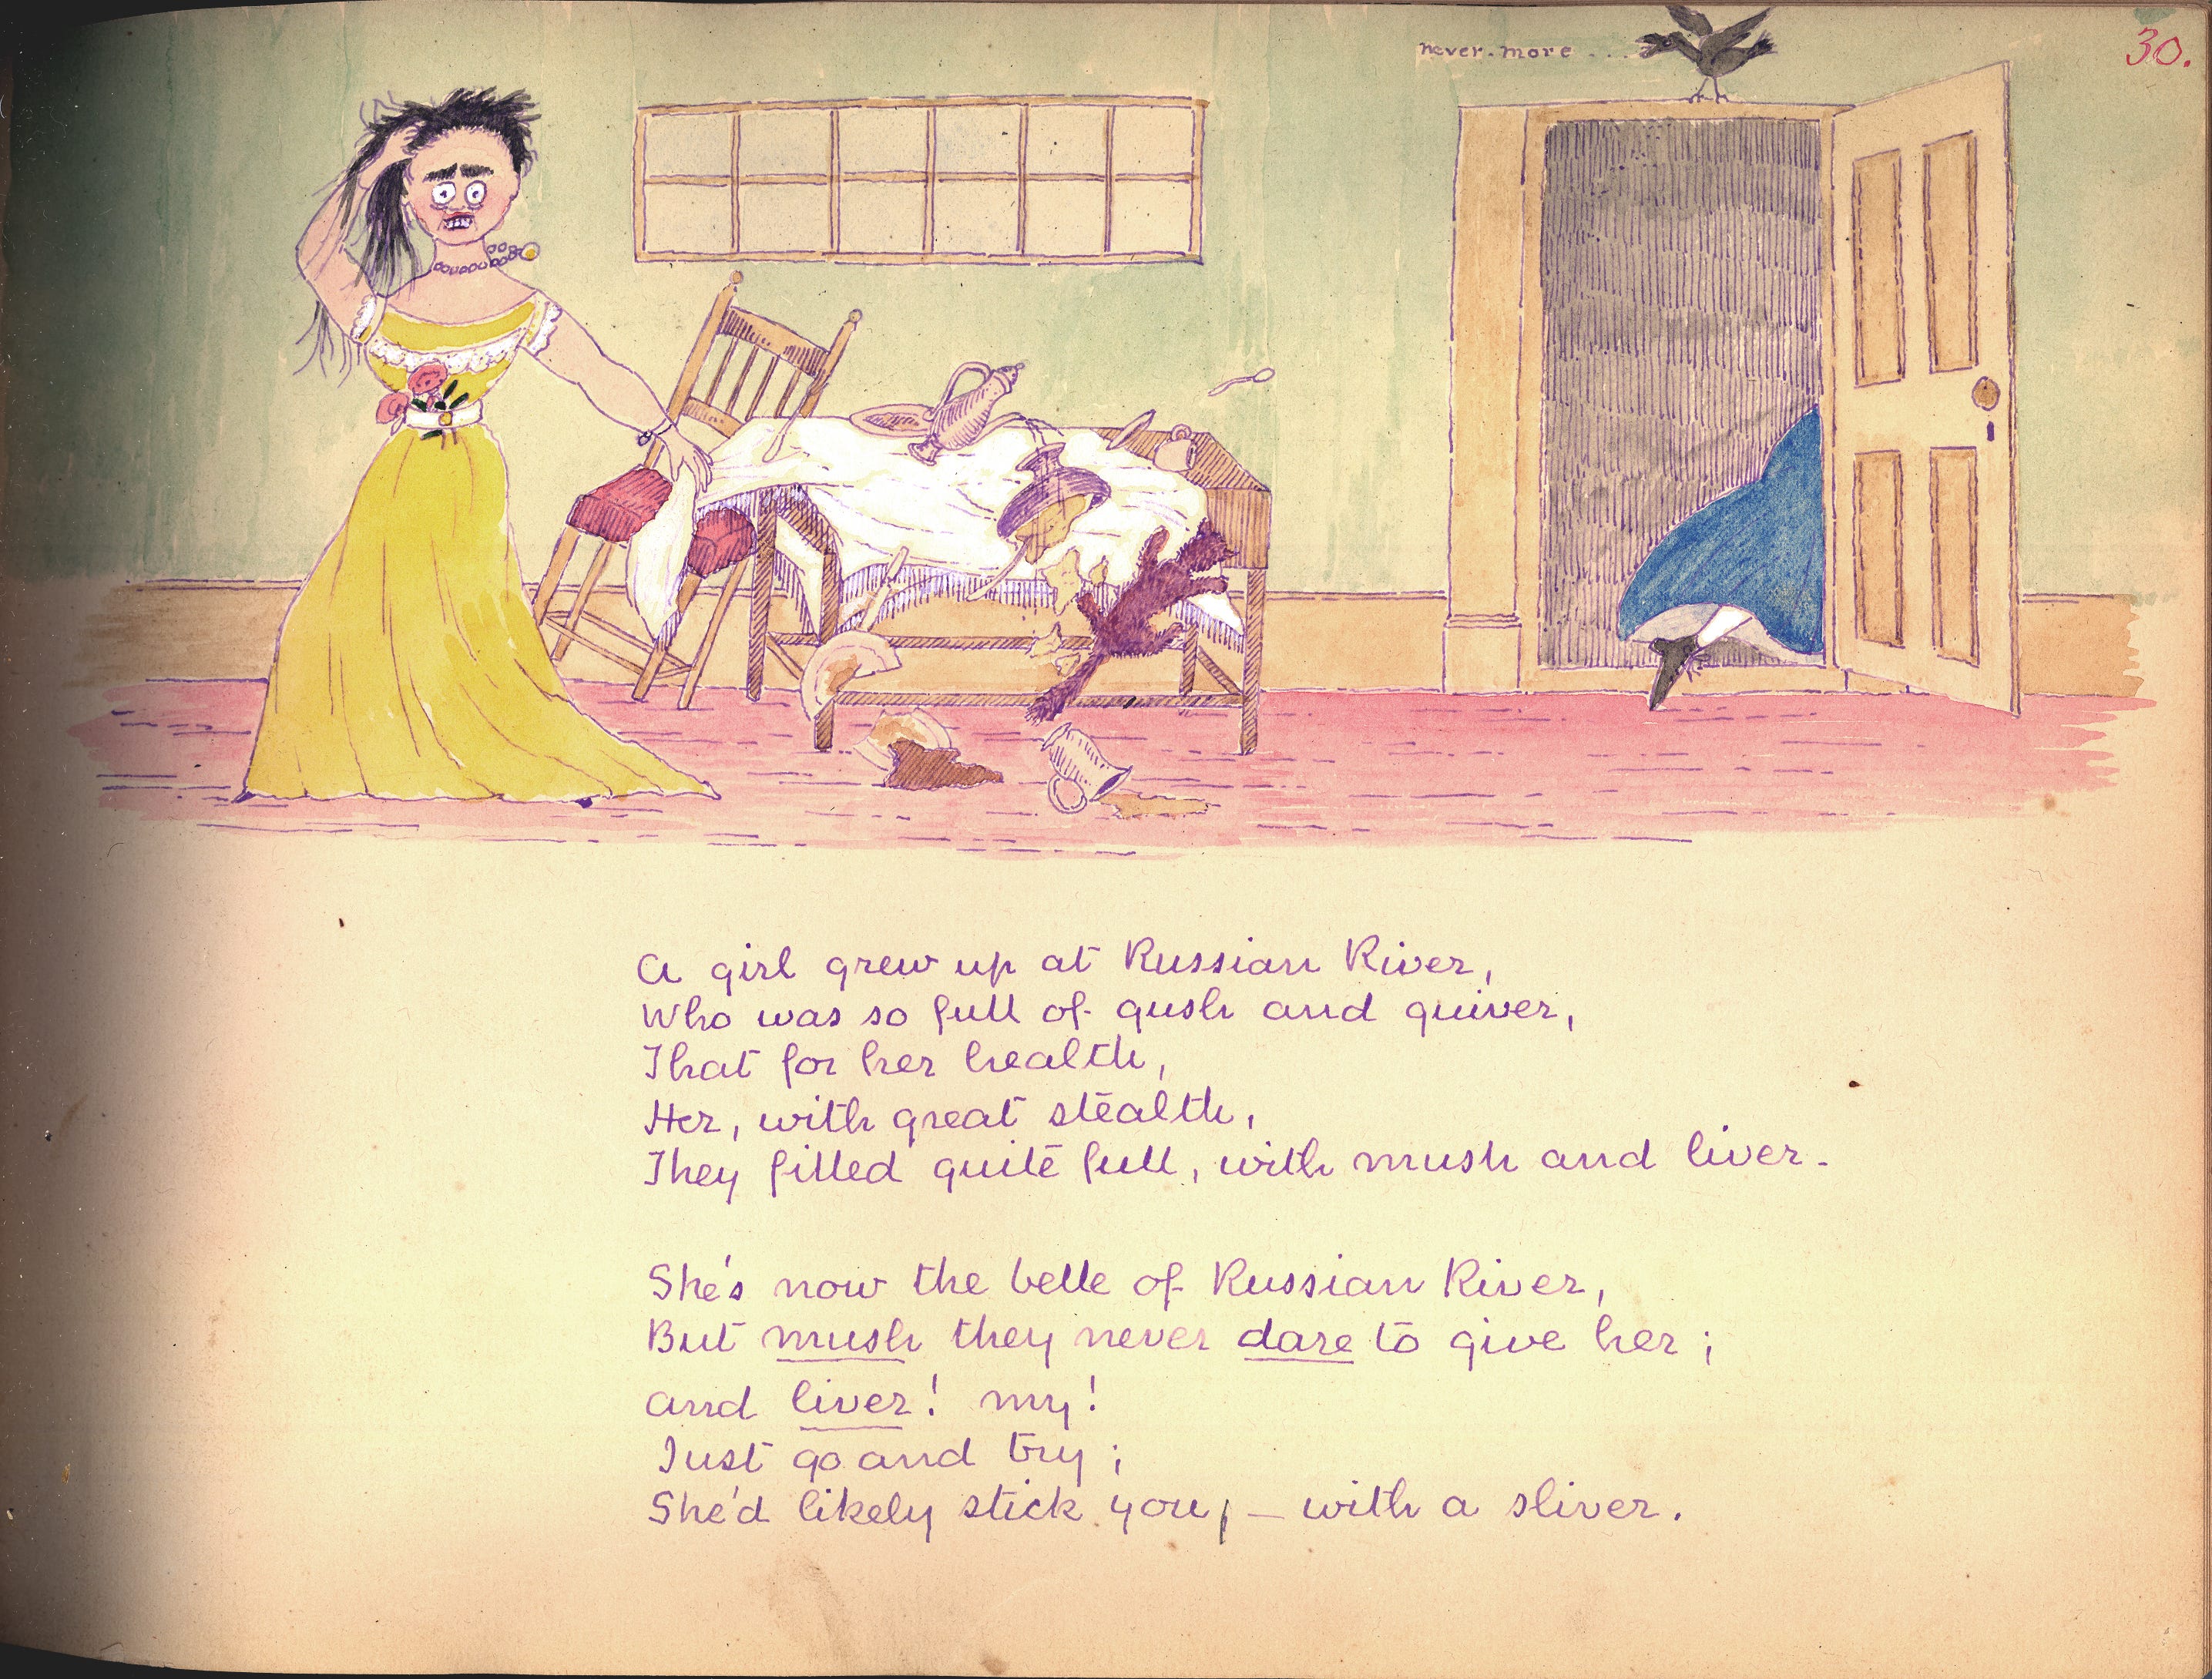 30.
never-more . . . .
A girl grew up at Russian River,
Who was so full of gush and quiver,
That for her health,
Her, with great stealth,
They filled quite full, with mush and liver.
She's now the belle of Russian River,
But mush they never dare to give her;
and liver! my!
Just go and try;
She'd likely stick you, – with a sliver.